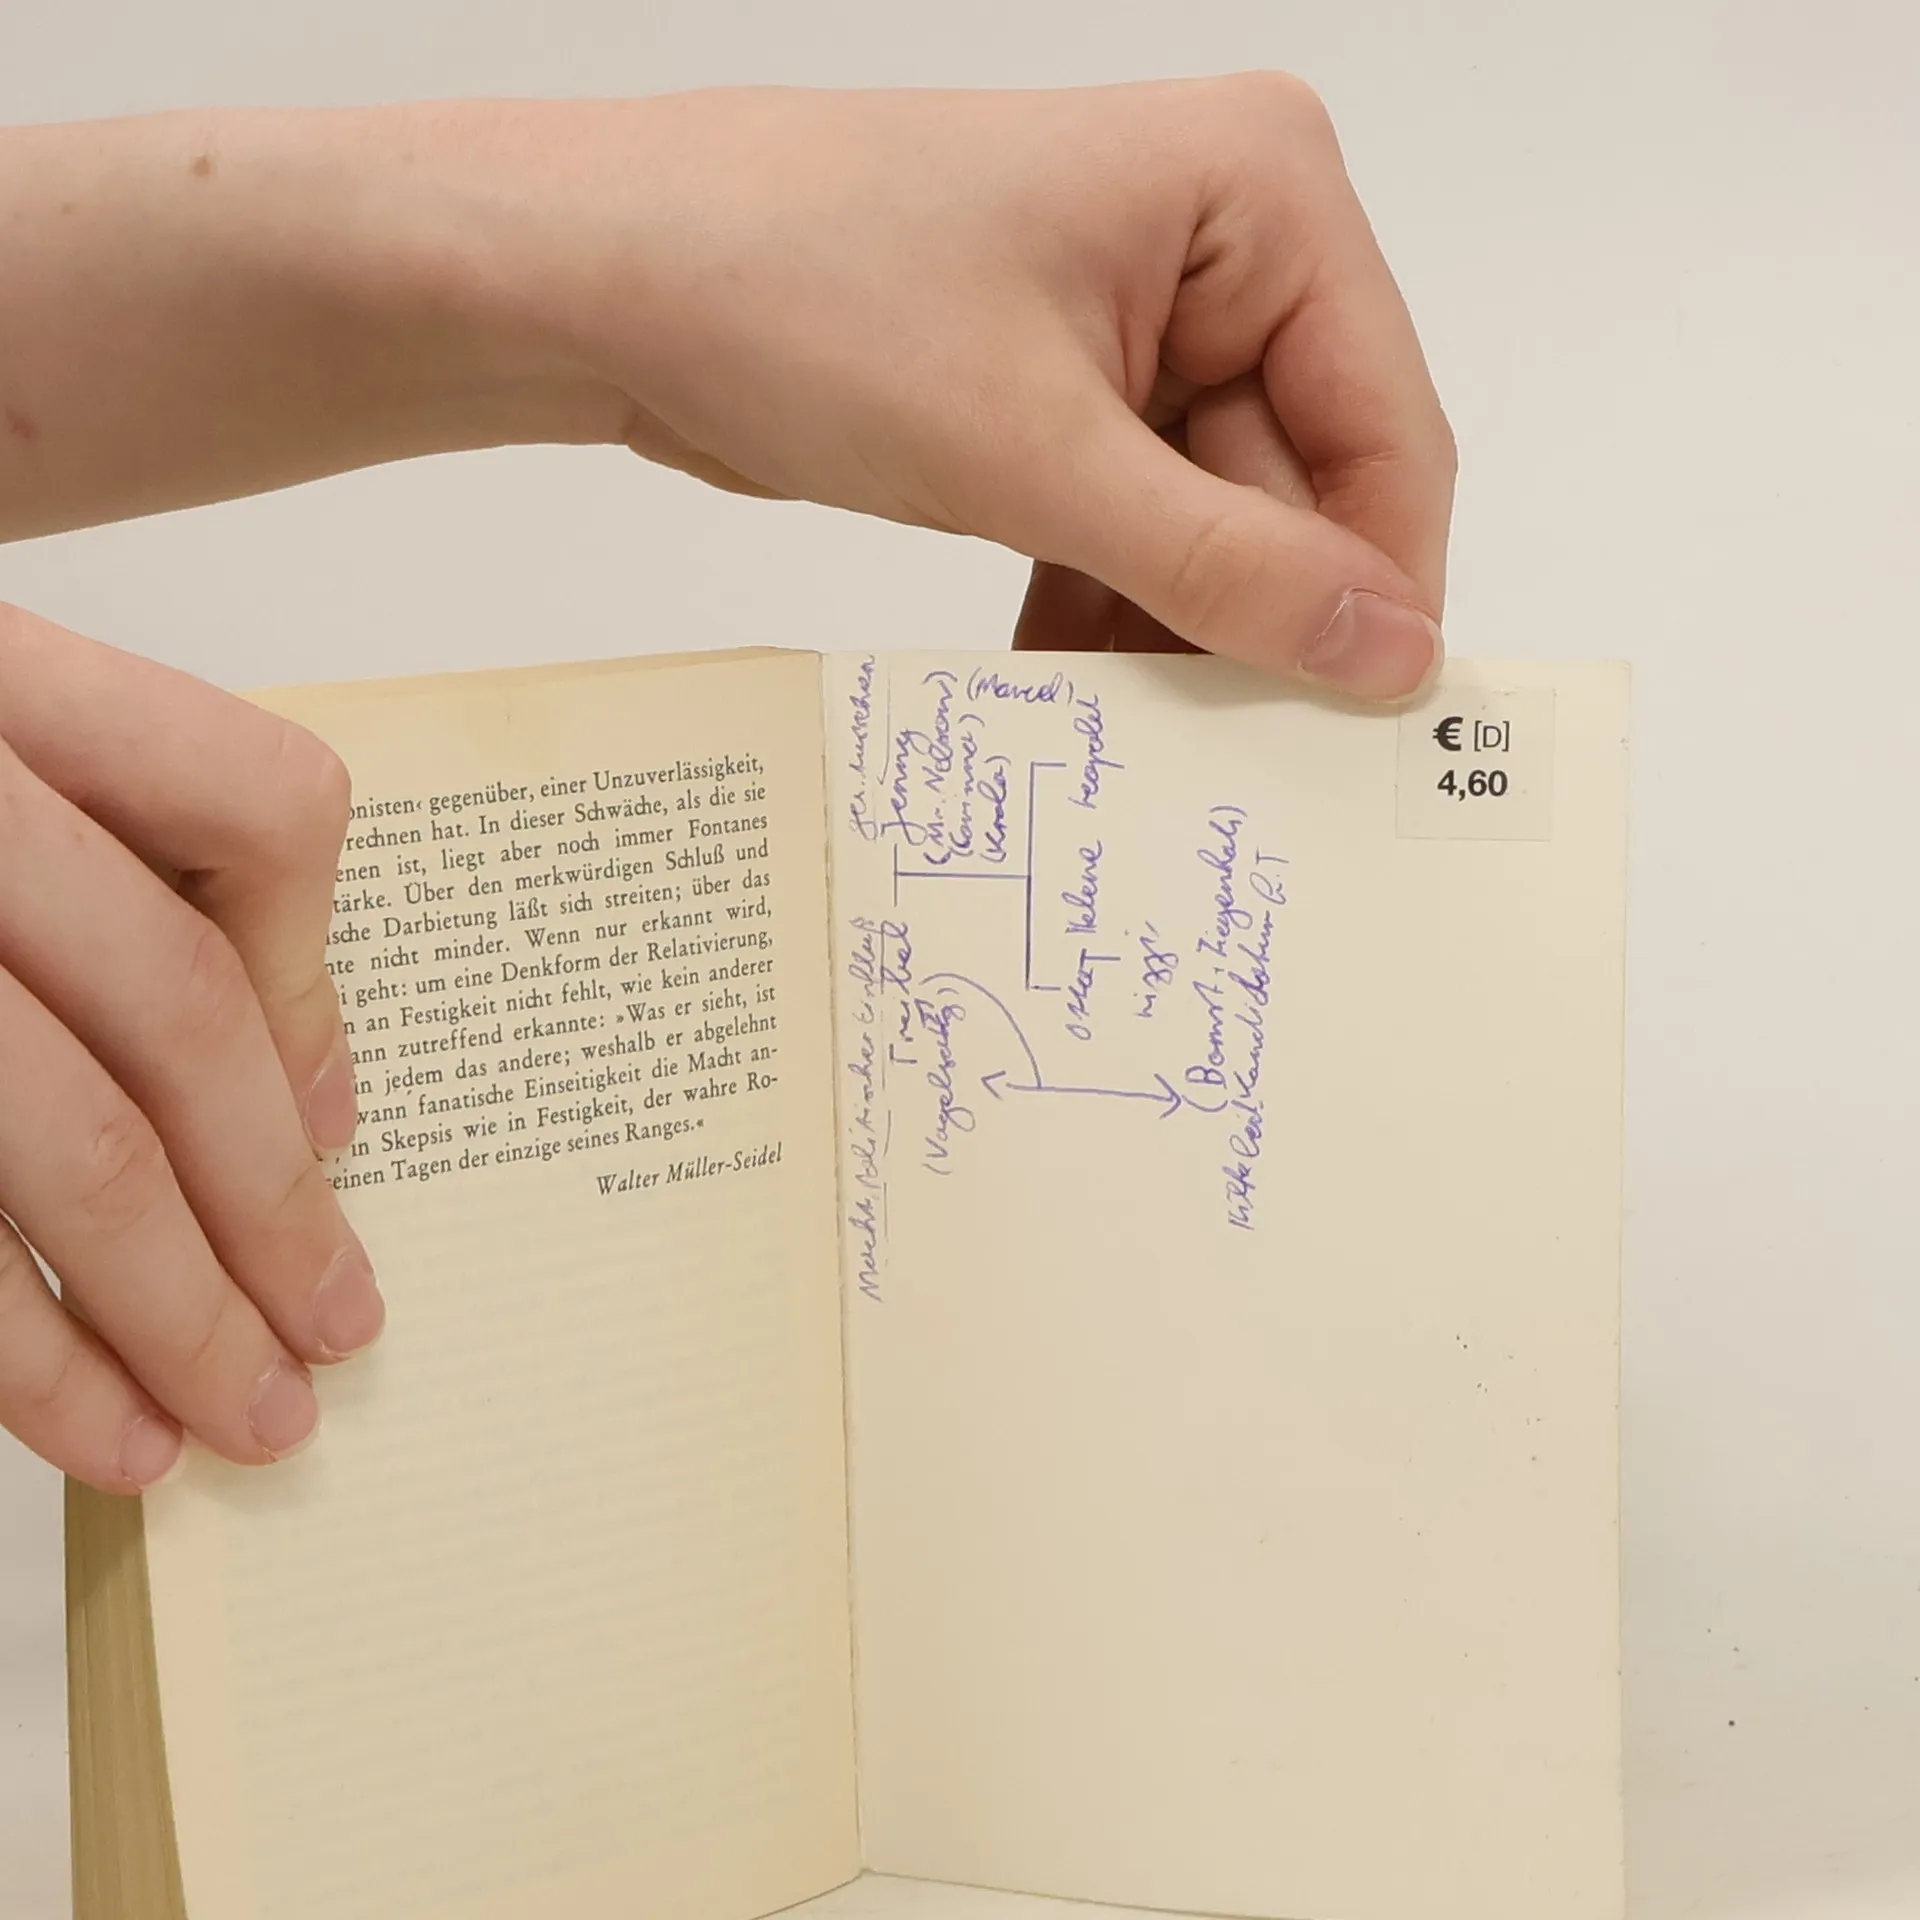 onisten‹ gegenüber, einer Unzuverlässigkeit,
rechnen hat. In dieser Schwäche, als die sie
enen ist, liegt aber noch immer Fontanes
tärke. Über den merkwürdigen Schluß und
ische Darbietung läßt sich streiten; über das
nte nicht minder. Wenn nur erkannt wird,
i geht: um eine Denkform der Relativierung,
n an Festigkeit nicht fehlt, wie kein anderer
ann zutreffend erkannte: »Was er sieht, ist
in jedem das andere; weshalb er abgelehnt
wann fanatische Einseitigkeit die Macht an-
, in Skepsis wie in Festigkeit, der wahre Ro-
einen Tagen der einzige seines Ranges.«
Walter Müller-Seidel
€ [D]
4,60
Macht, politischer Einfluß
Treibel
Jenny
(Vogelsang)
(Mr. Nelson)
(Corinna)
(Marcel)
(Krola)
Helene
Leopold
Lizzi